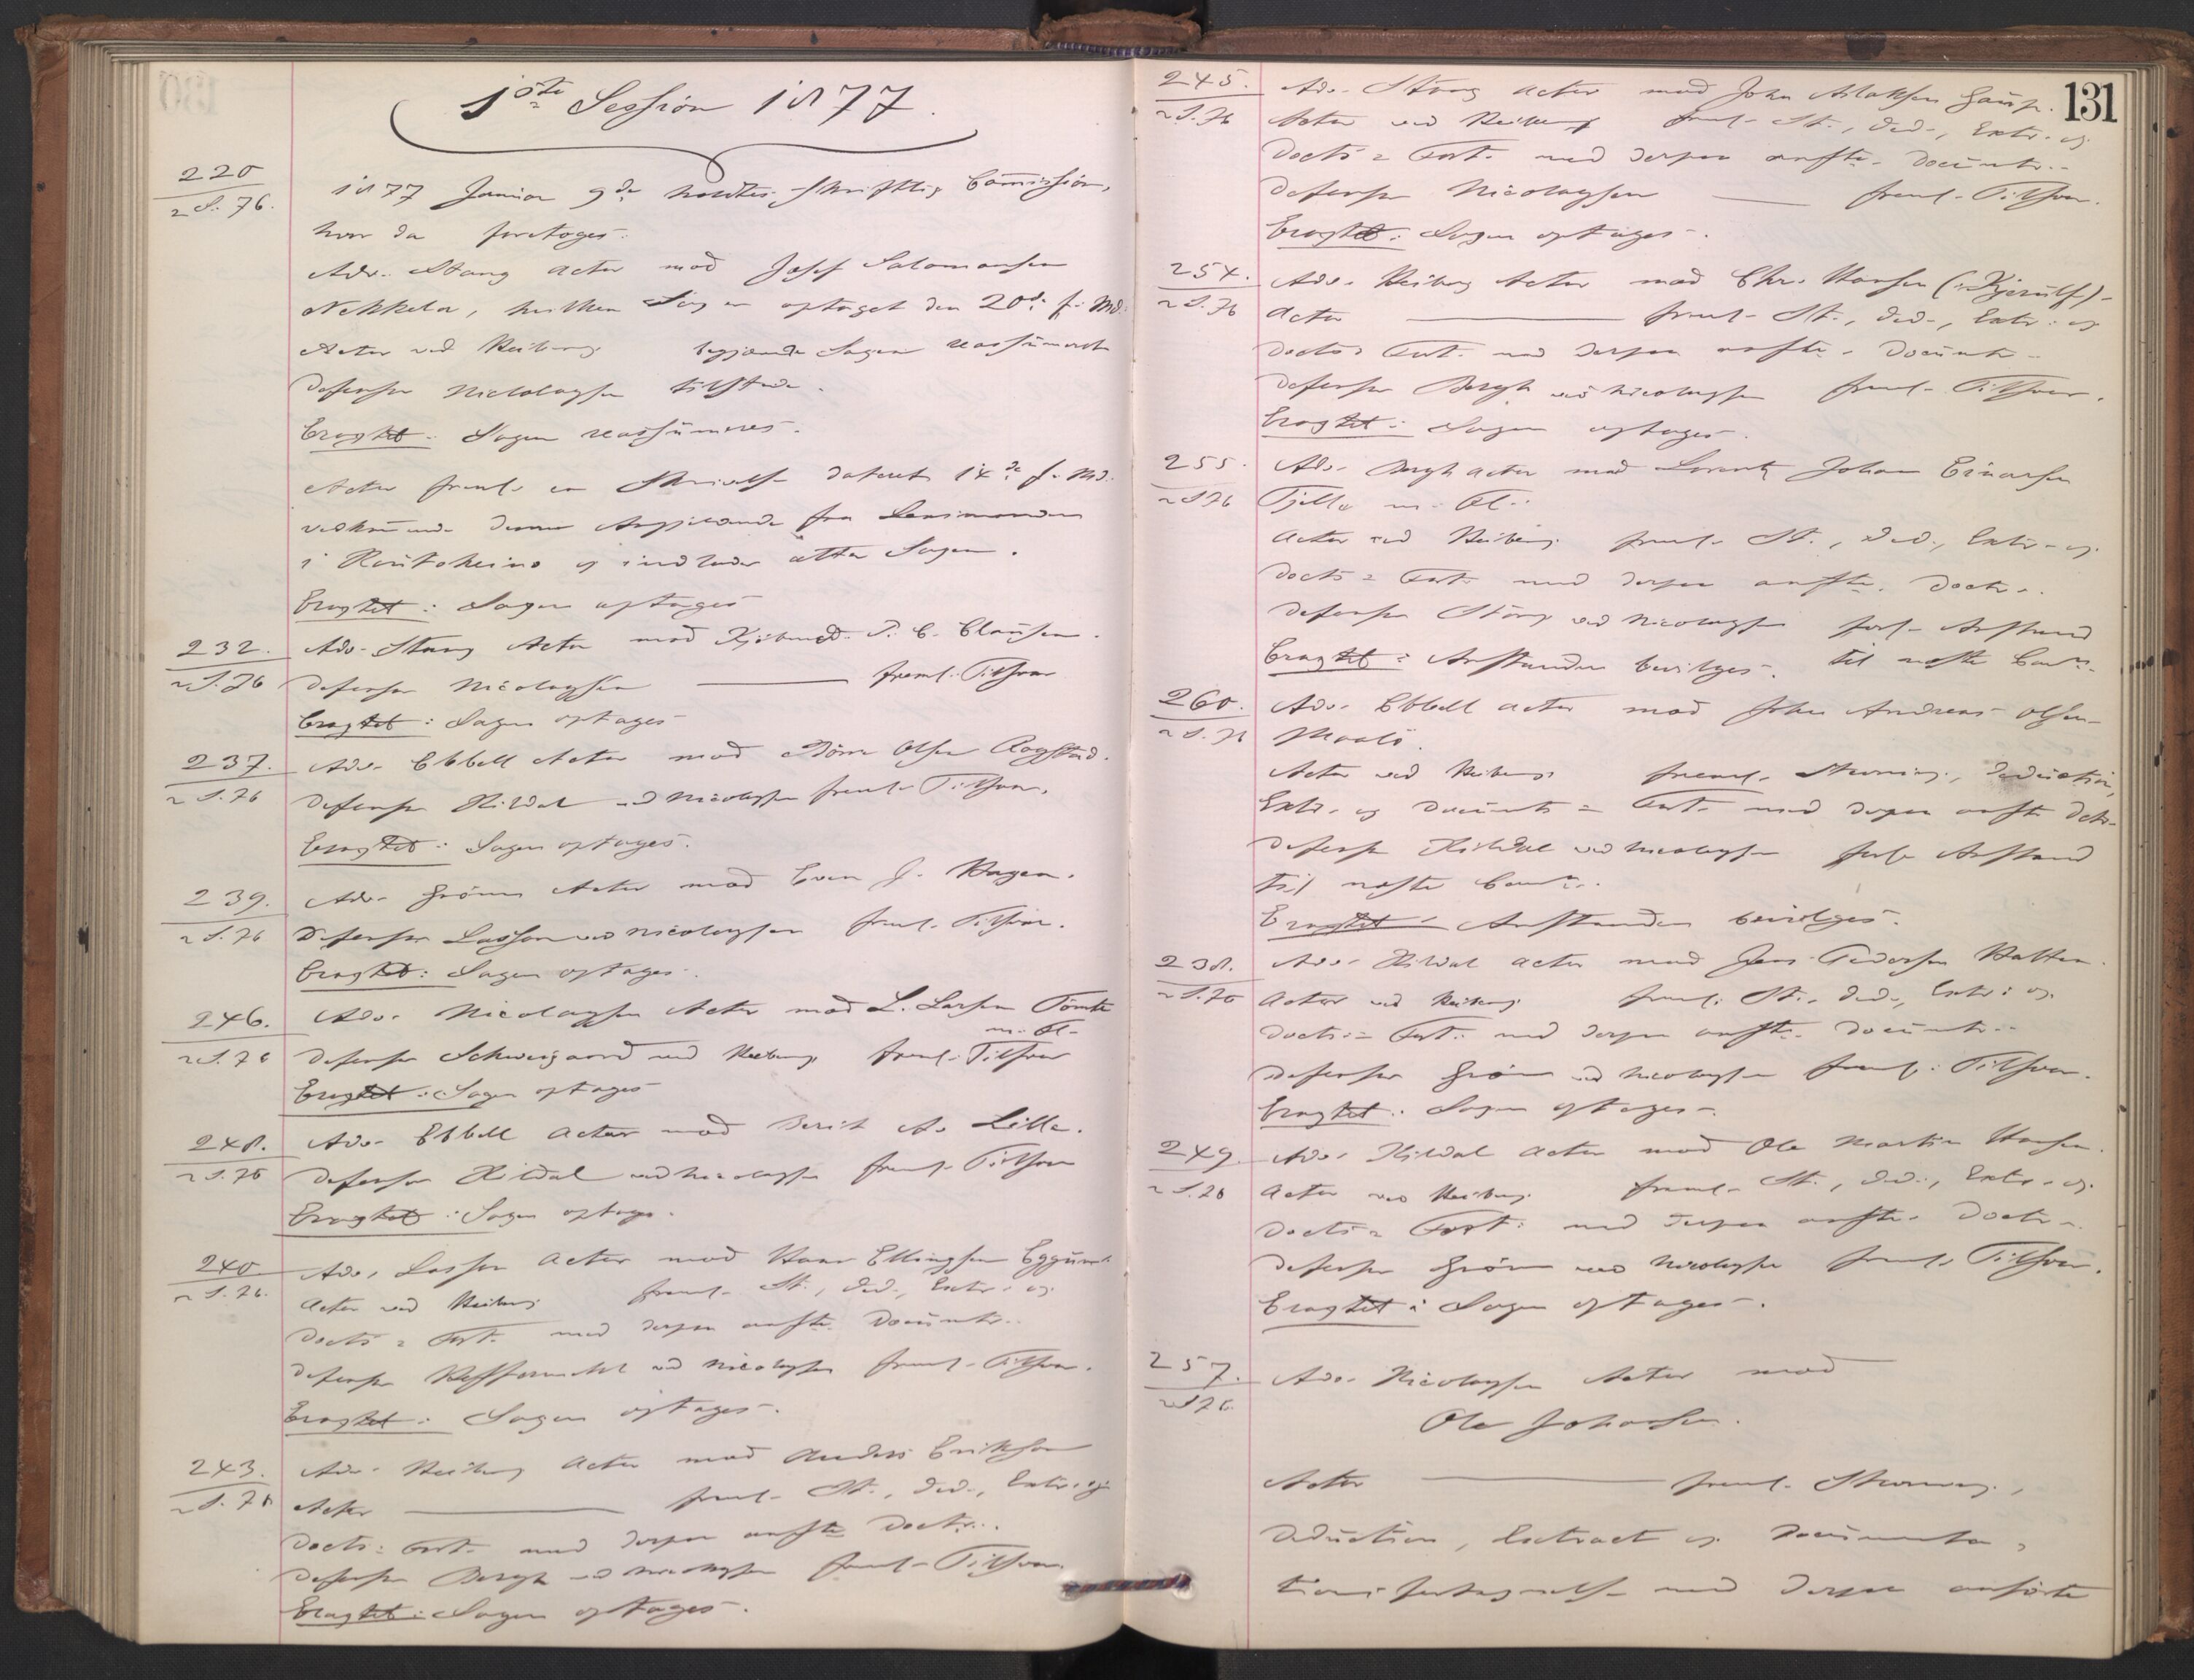 1ste Session 1877.
220
2 S. 76.
1877 Januar 9de holdtes skriftlig Commission,
hvor da foretoges:
Adv. Stang Actor mod Josef Salomonsen
Nekkela, hvilken Sag er optaget den 20de f. Md.
Actor ved Heiberg begjærede Sagen reassumeret
Defensor Nicolaysen tilstede.
Eragtet: Sagen reassumeres.
Actor freml. en Skrivelse dateret 14de f. Md.
vedkommende denne Angjældende fra Lensmanden
i Koutokeino og indlader atter Sagen.
Eragtet: Sagen optages
232.
2 S. 76
Adv. Stang Actor mod Kjøbmd. P. C. Clausen.
Defensor Nicolaysen freml. Tilsvar
Eragtet: Sagen optages
237.
2 S. 76
Adv. Ebbell Actor mod Olsen Rogstad.
Defensor Hildal ved Nicolaysen freml. Tilsvar.
Eragtet: Sagen optages.
239.
2 S. 76
Adv. Grönn Actor mod Even J. Hagen.
Defensor Lasson ved Nicolaysen freml. Tilsvar.
Eragtet: Sagen optages.
246.
2 S. 76
Adv. Nicolaysen Actor mod L. Larsen Tomte
m. Fl.
Defensor Schweigaard ved Heiberg freml. Tilsvar
Eragtet: Sagen optages
248.
2 S. 76
Adv. Ebbell Actor mod Berit A. Lille.
Defensor Hildal ved Nicolaysen freml. Tilsvar
Eragtet: Sagen optages.
240
2 S. 76.
Adv. Lasson Actor mod Hans Ellingsen Eggum.
Actor ved Heiberg freml. St., Ded., Extr. og
Docts = Fort. med derpaa anførte Documtr.
Defensor ved Nicolaysen freml. Tilsvar.
Eragtet: Sagen optages.
243.
2 S. 76
Adv. Heiberg Actor mod Anders Eriksen
Actor freml. St., Ded., Extr. og
Docts = Fort. med derpaa anførte Doctr.
Defensor Bergh ved Nicolaysen freml. Tilsvar.
Eragtet: Sagen optages.
131
245.
2 S. 76
Adv. Stang Actor mod John Aslaksen
Actor ved Heiberg freml. St., Ded., Extr. og
Docts = Fort. med derpaa anførte Documtr.
Defensor Nicolaysen freml. Tilsvar.
Eragtet: Sagen optages.
254.
2 S. 76
Adv. Heiberg Actor mod Chr. Hansen (Kjerulf).
Actor freml. St., Ded., Extr. og
Docts = Fort. med derpaa anførte Documtr.
Defensor Bergh ved Nicolaysen freml. Tilsvar.
Eragtet: Sagen optages.
255.
2 S. 76
Adv. Bergh Actor mod Lorentz Johan Einarsen
Fjelle m. Fl.
Actor ved Heiberg freml. St., Ded., Extr. og
Docts = Fort. med derpaa anførte Doctr.
Defensor Stang ved Nicolaysen forl. Anstand
Eragtet: Anstanden bevilges. til næste Comm.
260.
2 S. 76
Adv. Ebbell Actor mod John Andreas Olsen
Maalö.
Actor ved Heiberg freml. Stevning, Deduction,
Extr. og Documts = Fort. med derpaa anførte Dctr.
Defensor Hildal ved Nicolaysen forl. Anstand
til næste Comm.
Eragtet: Anstanden bevilges.
238.
2 S. 76
Adv. Hildal Actor mod Jens Pedersen Hatten.
Actor ved Heiberg freml. St., Ded., Extr. og
Docts = Fort. med derpaa anførte Documtr.
Defensor Grönn ved Nicolaysen freml. Tilsvar.
Eragtet: Sagen optages.
249
2 S. 76
Adv. Hildal Actor mod Ole Martin Hansen.
Actor ved Heiberg freml. St., Ded., Extr. og
Docts = Fort. med derpaa anførte Doctr.
Defensor Grönn ved Nicolaysen freml. Tilsvar.
Eragtet: Sagen optages.
257.
2 S. 76.
Adv. Nicolaysen Actor mod
Ole Johansen.
Actor freml. Stevning,
Deduction, Extract og Documenta=
tionsfortegnelse med derpaa anførte